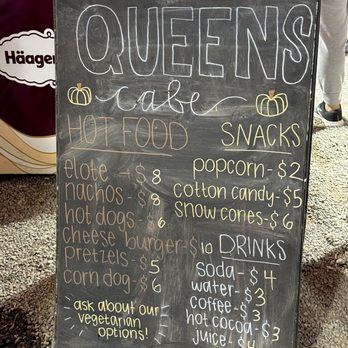 Häagen
QUEENS
cabe
HOT FOOD
elote - $8
nachos - $8
hot dogs - $6
cheese burger - $10
pretzels - $5
corn dog - $6
ask about our
vegetarian
options!
SNACKS
popcorn - $2
cotton candy - $5
snow cones - $6
DRINKS
soda - $4
water - $3
coffee - $3
hot cocoa - $3
juice - $4